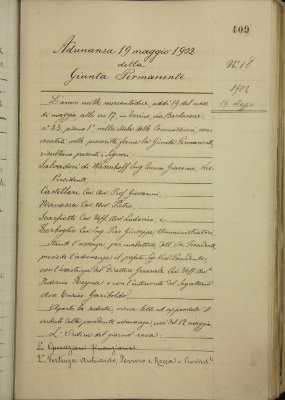 409
Adunanza 19 maggio 1902
della
Giunta Permanente
N. 18
1902
19 Maggio
L'anno mille novecentodue, addì 19 del mese
di maggio alle ore 17, in Torino, via Barbaroux
n° 22, piano 1°, nella Sala della Commissione, con
la presente, forme la Giunta Permanente,
risultano presenti i Signori:
Salvadori di Wiesenhoff Ing. Comm. Giacomo, Vice
Presidente
Castellari Cav. Avv. Prof. Giovanni
Navassa Cav. Avv. Pietro
Scarfiotti Cav. Uff. Avv. Lodovico e
Cav. Ing. Pier Giuseppe Amministratori
Stante l'assenza per malattia dell'Ill. Presidente,
presiede l'adunanza il prefato Sig. Vice Presidente,
con l'assistenza del Direttore Generale Cav. Uff. Avv.
Federico Reynaud e con l'intervento del Segretario
Avv. Enrico Gariboldi.
Aperta la seduta, viene letto ed approvato il
verbale della precedente adunanza, cioè del 12 maggio.
L'Ordine del giorno reca:
1° Operazioni finanziarie
2° Vertenza Antoniardo, Ferrero e Rocca